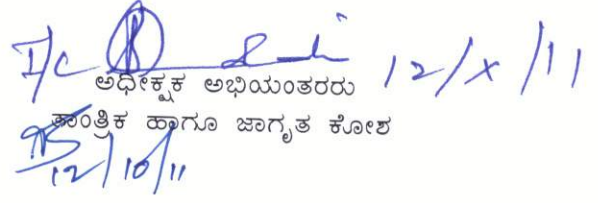 I/c 12/X/11
ಅಧೀಕ್ಷಕ ಅಭಿಯಂತರರು
ತಾಂತ್ರಿಕ ಹಾಗೂ ಜಾಗೃತ ಕೋಶ
12/10/11